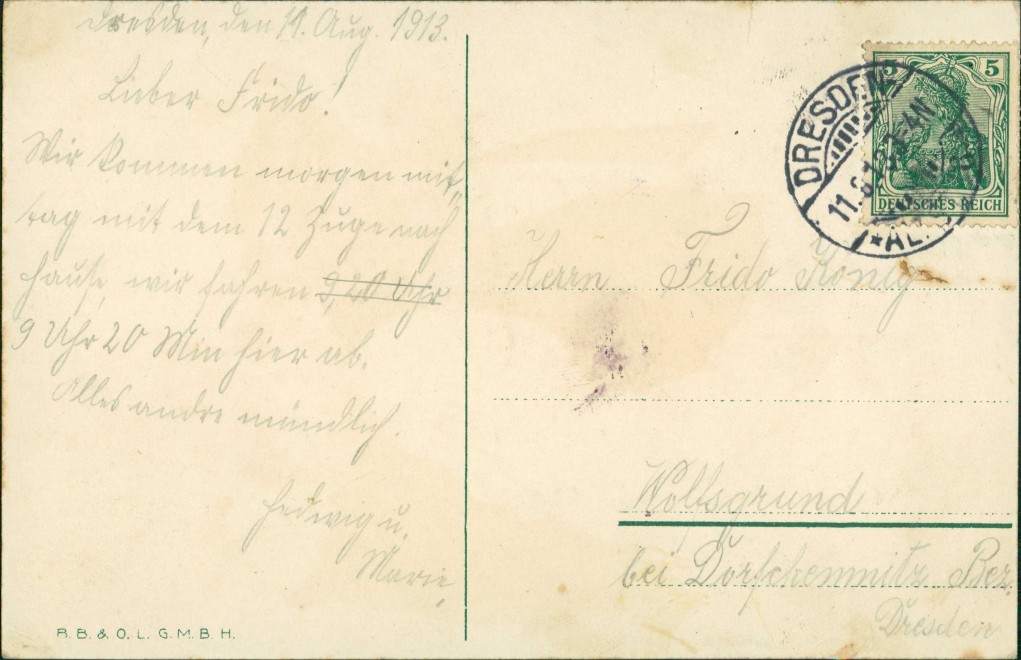 Dresden, den 11. Aug. 1913.
Lieber Frido!
Wir kommen morgen mit„
tag mit dem 12 Zuge nach
hause, wir fahren 9,20 Uhr
9 Uhr 20 Min hier ab.
Alles andre mündlich.
Hedwig u.
Marie.
R. B. & O. L. G. M. B. H.
5 5
DEUTSCHES REICH
DRESDEN
11.8.
*AL.
Herrn Frido König
Wolfsgrund
bei Dorfchemnitz Bez.
Dresden